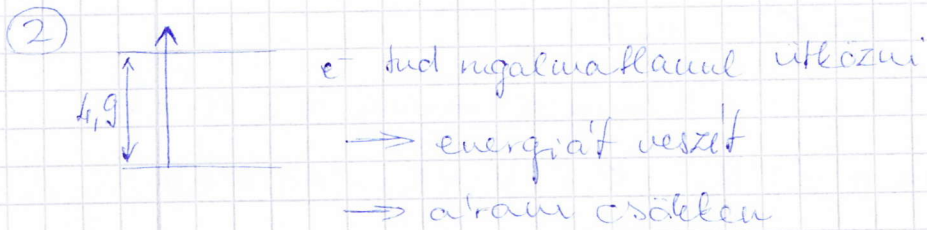 2
e⁻ tud rugalmatlanul ütközni
4,9
→ energiát veszít
→ áram csökken